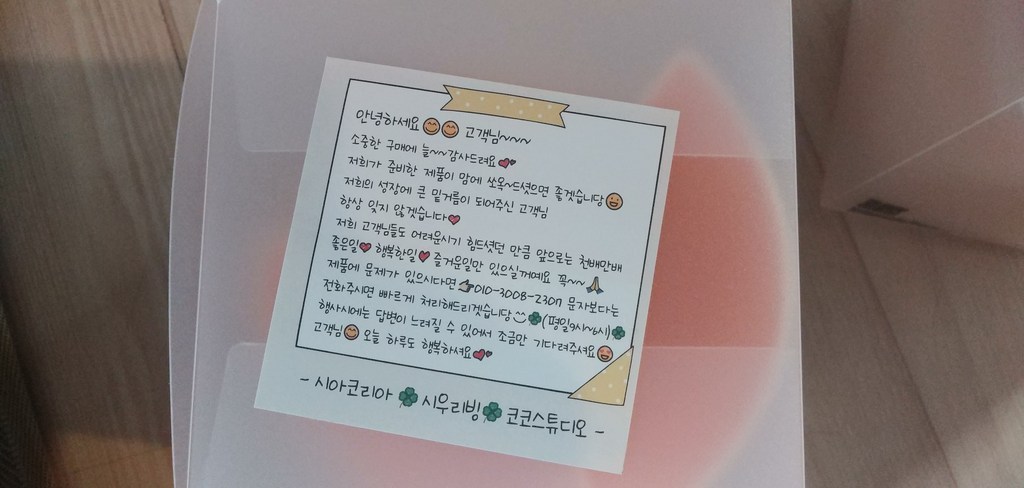 안녕하세요😊😊 고객님~~~
소중한 구매에 늘~~감사드려요💕
저희가 준비한 제품이 맘에 쏘옥~드셧으면 좋겟습니당😄
저희의 성장에 큰 밑거름이 되어주신 고객님
항상 잊지 않겠습니다❤
저희 고객님들도 어려운시기 힘드셧던 만큼 앞으로는 천배만배
좋은일❤ 행복한일❤ 즐거운일만 있으실꺼예요 꼭~~🙏
제품에 문제가 있으시다면 👉010-3008-2307 문자보다는
전화주시면 빠르게 처리해드리겟습니당☺🍀(평일9시~6시)🍀
행사시에는 답변이 느려질 수 있어서 조금만 기다려주셔요😄
고객님😊 오늘 하루도 행복하셔요💕
- 시아코리아 🍀시우리빙🍀코코스튜디오 -